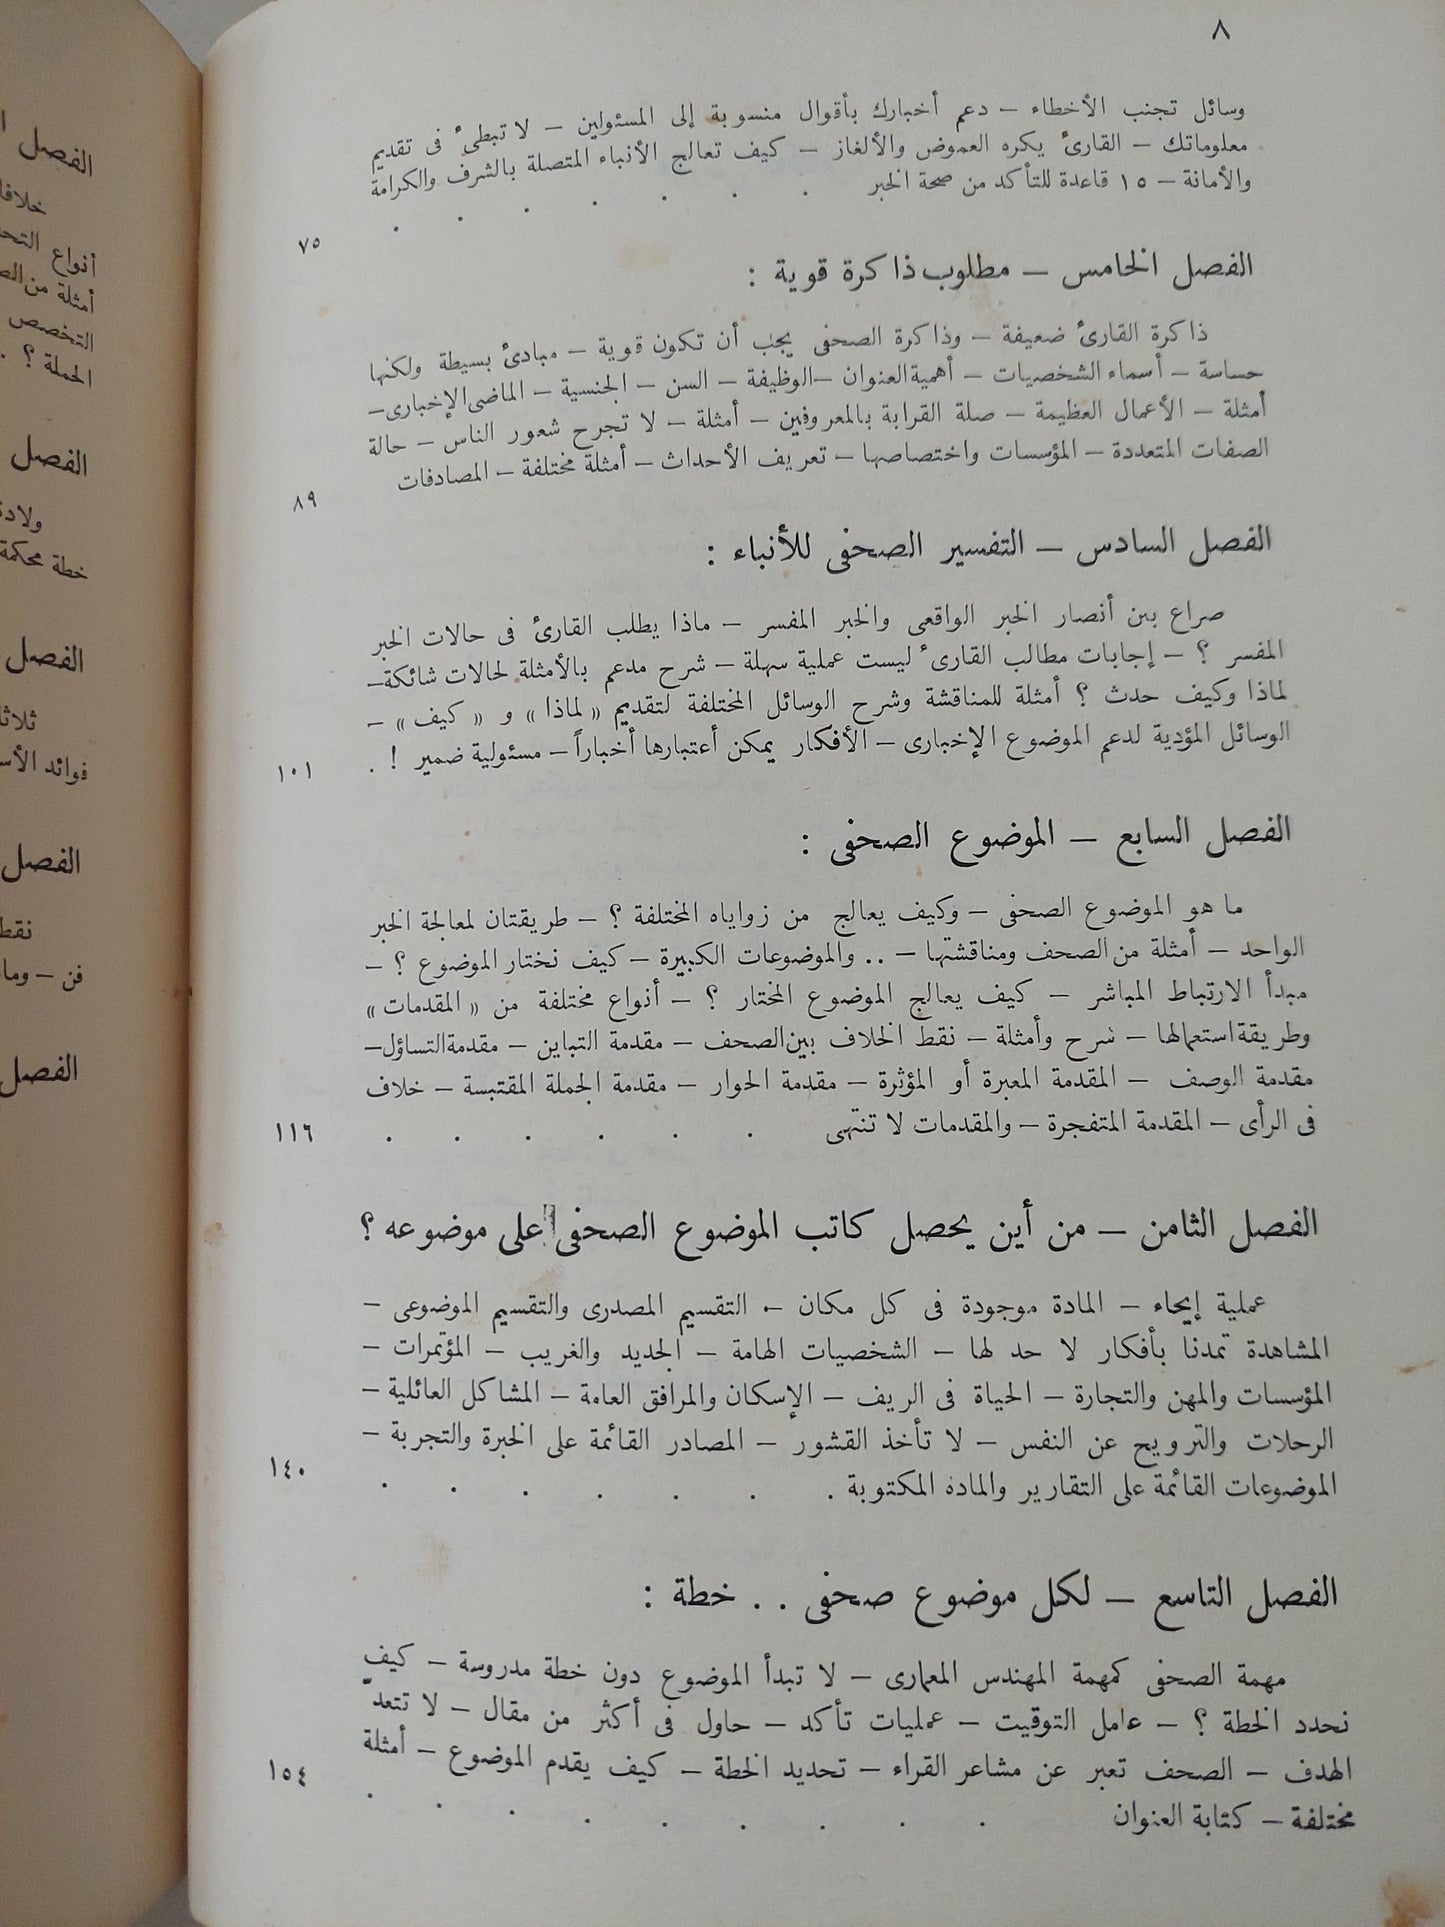 ٨
وسائل تجنب الأخطاء – دعم أخبارك بأقوال منسوبة إلى المسئولين – لا تبطىء فى تقديم
معلوماتك – القارئ يكره العموض والألغاز – كيف تعالج الأنباء المتصلة بالشرف والكرامة
والأمانة – ١٥ قاعدة للتأكد من صحة الخبر . . . . . . . ٧٥
الفصل الخامس – مطلوب ذاكرة قوية :
ذاكرة القارئ ضعيفة – وذاكرة الصحفى يجب أن تكون قوية – مبادئ بسيطة ولكنها
حساسة – أسماء الشخصيات – أهمية العنوان – الوظيفة – السن – الجنسية – الماضى الإخبارى –
أمثلة – الأعمال العظيمة – صلة القرابة بالمعروفين – أمثلة – لا تجرح شعور الناس – حالة
الصفات المتعددة – المؤسسات واختصاصها – تعريف الأحداث – أمثلة مختلفة – المصادفات ٨٩
الفصل السادس – التفسير الصحفى للأنباء :
صراع بين أنصار الخبر الواقعى والخبر المفسر – ماذا يطلب القارئ فى حالات الخبر
المفسر ؟ – إجابات مطالب القارىء ليست عملية سهلة – شرح مدعم بالأمثلة لحالات شائكة –
لماذا وكيف حدث ؟ أمثلة للمناقشة وشرح الوسائل المختلفة لتقديم « لماذا » و « كيف » –
الوسائل المؤدية لدعم الموضوع الإخبارى – الأفكار يمكن أعتبارها أخباراً – مسئولية ضمير ! . ١٠١
الفصل السابع – الموضوع الصحفى :
ما هو الموضوع الصحفى – وكيف يعالج من زواياه المختلفة ؟ – طريقتان لمعالجة الخبر
الواحد – أمثلة من الصحف ومناقشتها – .. والموضوعات الكبيرة – كيف نختار الموضوع ؟ –
مبدأ الارتباط المباشر – كيف يعالج الموضوع المختار ؟ – أنواع مختلفة من « المقدمات »
وطريقة استعمالها – شرح وأمثلة – نقط الخلاف بين الصحف – مقدمة التباين – مقدمة التساؤل –
مقدمة الوصف – المقدمة المعبرة أو المؤثرة – مقدمة الحوار – مقدمة الجملة المقتبسة – خلاف
فى الرأى – المقدمة المتفجرة – والمقدمات لا تنتهى . . . . . . ١١٦
الفصل الثامن – من أين يحصل كاتب الموضوع الصحفى على موضوعه ؟
عملية إيحاء – المادة موجودة فى كل مكان – التقسيم المصدرى والتقسيم الموضوعى –
المشاهدة تمدنا بأفكار لا حد لها – الشخصيات الهامة – الجديد والغريب – المؤتمرات –
المؤسسات والمهن والتجارة – الحياة فى الريف – الإسكان والمرافق العامة – المشاكل العائلية –
الرحلات والترويح عن النفس – لا تأخذ القشور – المصادر القائمة على الخبرة والتجربة –
الموضوعات القائمة على التقارير والمادة المكتوبة . . . . . . . ١٤٠
الفصل التاسع – لكل موضوع صحفى . . خطة :
مهمة الصحفى كمهمة المهندس المعمارى – لا تبدأ الموضوع دون خطة مدروسة – كيف
نحدد الخطة ؟ – عامل التوقيت – عمليات تأكد – حاول فى أكثر من مقال – لا تتعدّ
الهدف – الصحف تعبر عن مشاعر القراء – تحديد الخطة – كيف يقدم الموضوع – أمثلة
مختلفة – كتابة العنوان . . . . . . . . . ١٥٤
الفصل
أنواع
أمثلة من
التخصص
الحملة ؟ .
الفصل
خطة محكمة
الفصل
الفصل
فن – وما
الفصل